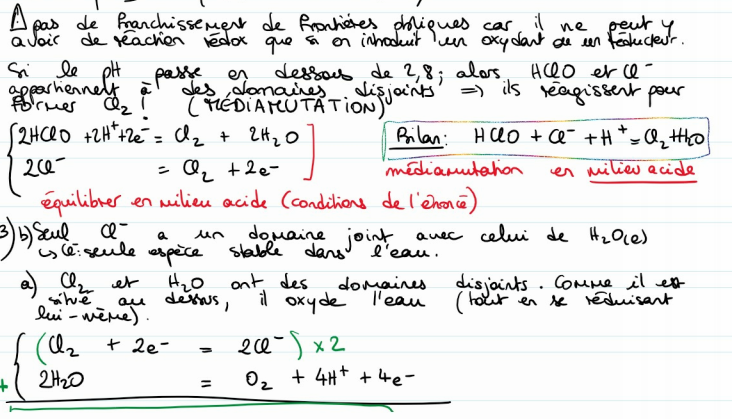 ⚠ pas de franchissement de frontières obliques car il ne peut y
avoir de réaction rédox que si on introduit un oxydant ou un réducteur.
Si le pH passe en dessous de 2,8 ; alors HClO et Cl⁻
appartiennent à des domaines disjoints ⇒ ils réagissent pour
former Cl₂ ! (MÉDIAMUTATION)
2HClO + 2H⁺ + 2e⁻ = Cl₂ + 2H₂O
2Cl⁻ = Cl₂ + 2e⁻
Bilan : HClO + Cl⁻ + H⁺ = Cl₂ + H₂O
médiamutation en milieu acide
équilibrer en milieu acide (conditions de l'énoncé)
3) b) Seul Cl⁻ a un domaine joint avec celui de H₂O(l)
↳ Cl⁻ : seule espèce stable dans l'eau.
a) Cl₂ et H₂O ont des domaines disjoints. Comme il est
situé au dessus, il oxyde l'eau (tout en se réduisant
lui-même).
(Cl₂ + 2e⁻ = 2Cl⁻) x2
+ 2H₂O = O₂ + 4H⁺ + 4e⁻